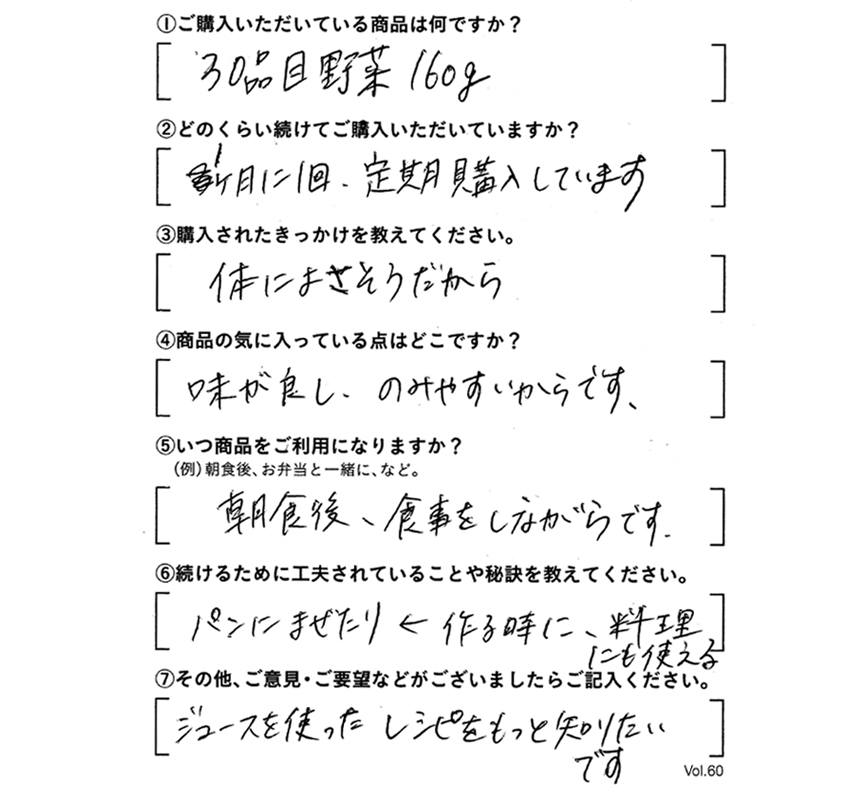 ①ご購入いただいている商品は何ですか?
30品目野菜160g
②どのくらい続けてご購入いただいていますか?
1ヶ月に1回、定期購入しています
③購入されたきっかけを教えてください。
体によさそうだから
④商品の気に入っている点はどこですか?
味が良し、のみやすいからです、
⑤いつ商品をご利用になりますか?
(例)朝食後、お弁当と一緒に、など。
朝食後、食事をしながらです.
⑥続けるために工夫されていることや秘訣を教えてください。
パンにまぜたり←作る時に、料理
にも使える
⑦その他、ご意見・ご要望などがございましたらご記入ください。
ジュースを使ったレシピをもっと知りたい
です
Vol.60